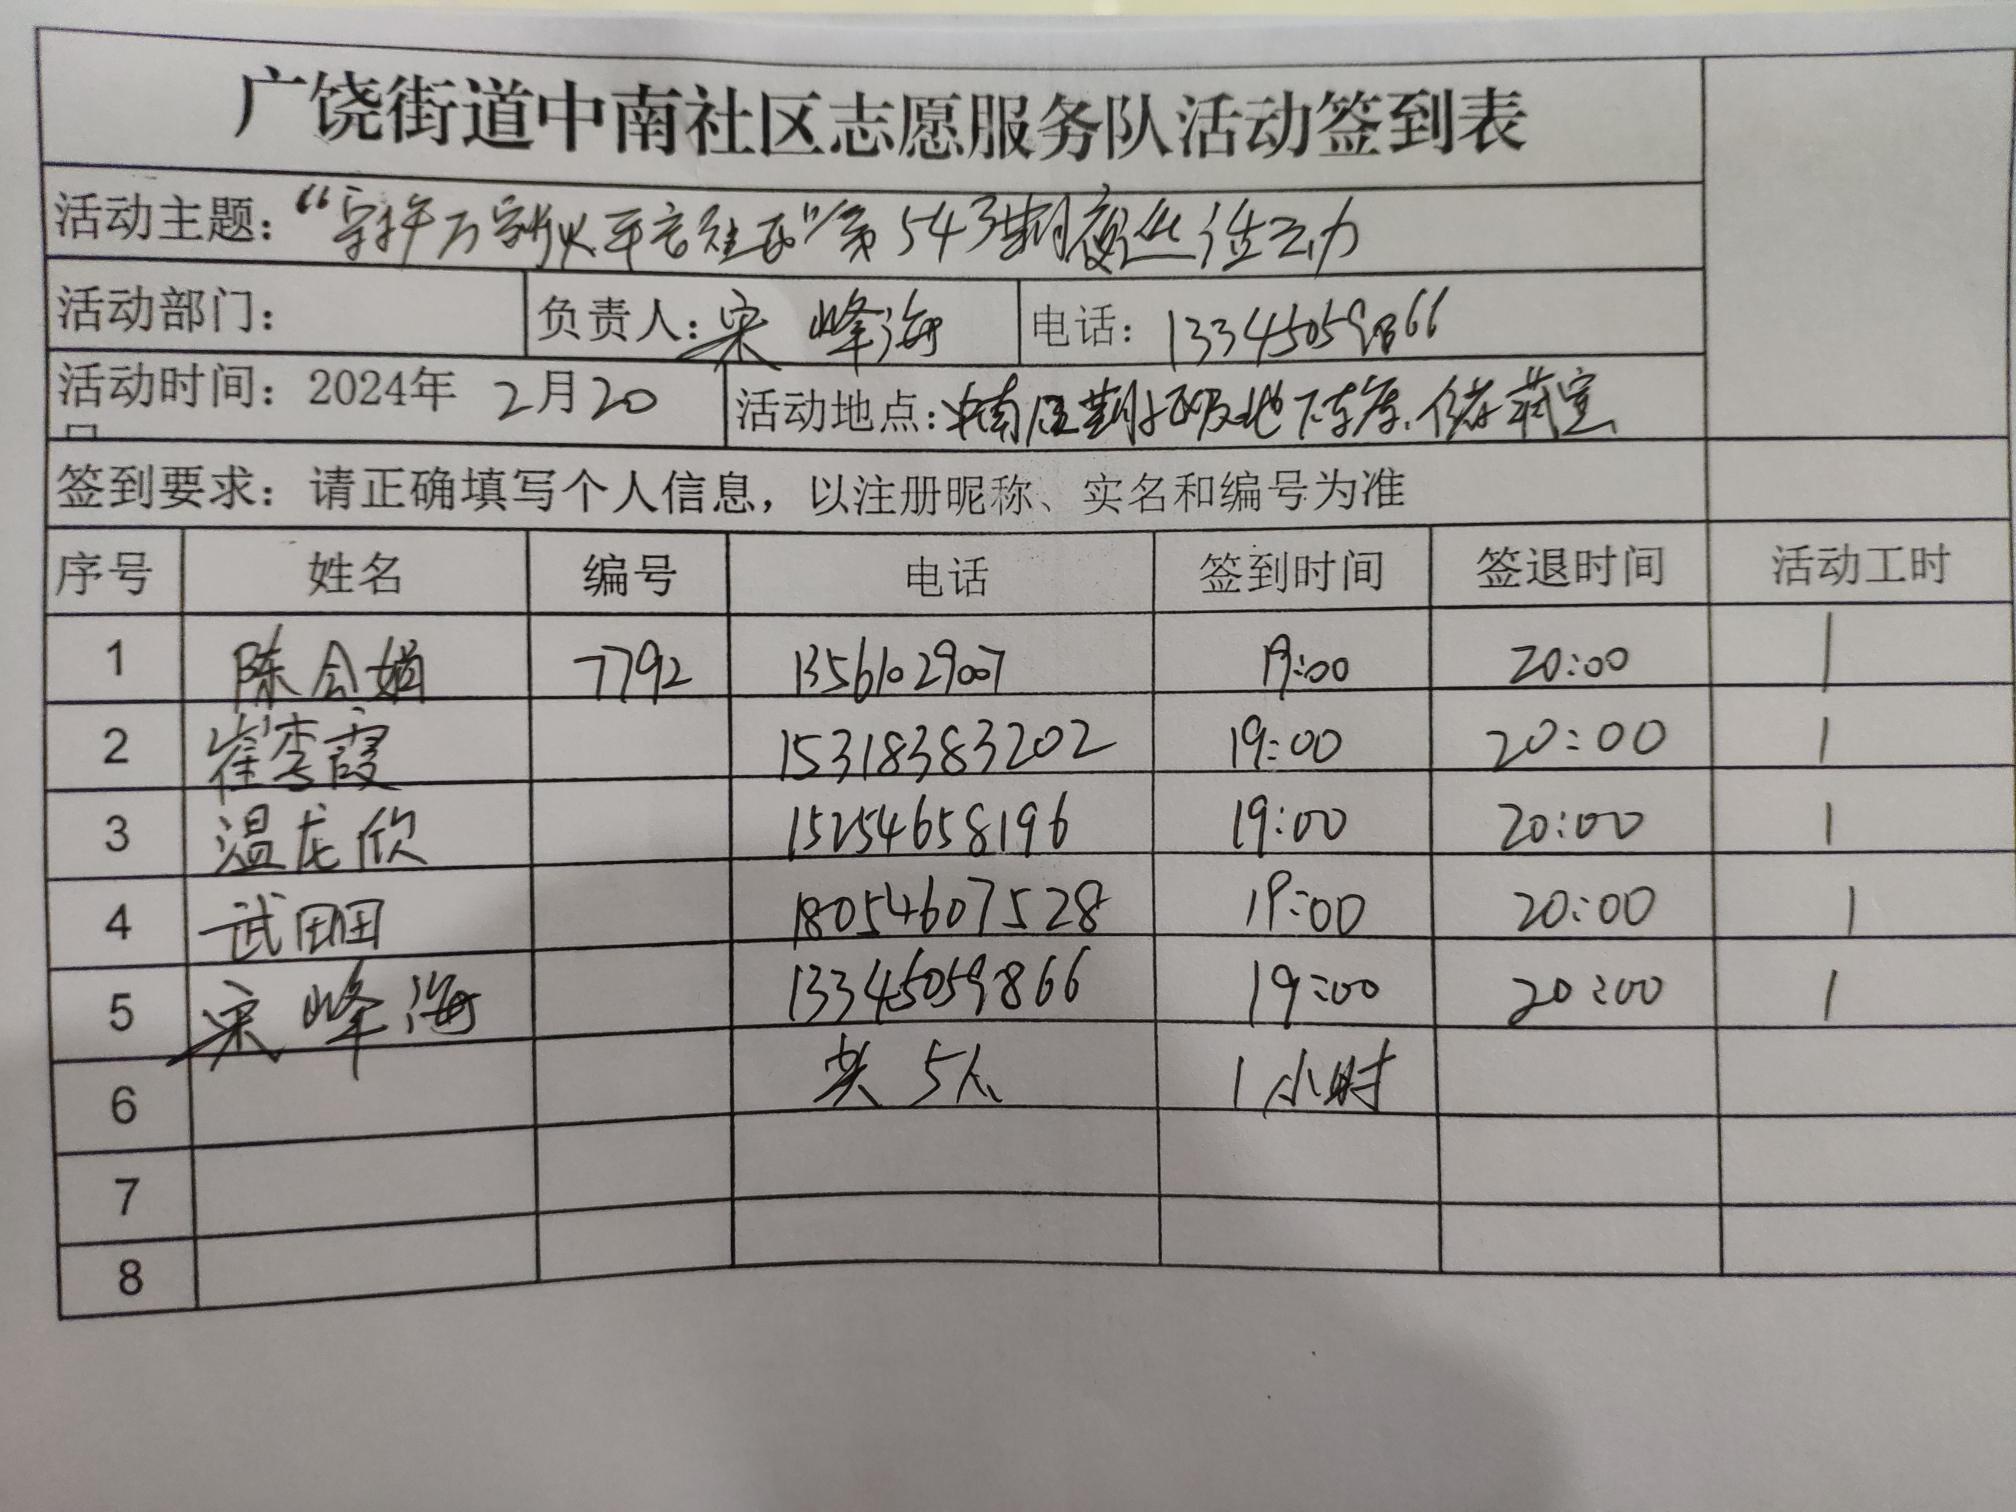 广饶街道中南社区志愿服务队活动签到表
活动主题：“守护万家灯火平安社区”第543期夜巡活动
活动部门： 负责人：宋峰海 电话：13345059866
活动时间：2024年2月20日 活动地点：中南 地下车库、储藏室
签到要求：请正确填写个人信息，以注册昵称、实名和编号为准
序号 姓名 编号 电话 签到时间 签退时间 活动工时
1 陈会娟 7792 13561029007 19:00 20:00 1
2 崔秀霞 15318383202 19:00 20:00 1
3 温龙欣 15254658196 19:00 20:00 1
4 武田田 18054607528 19:00 20:00 1
5 宋峰海 13345059866 19:00 20:00 1
6 共5人 1小时
7
8